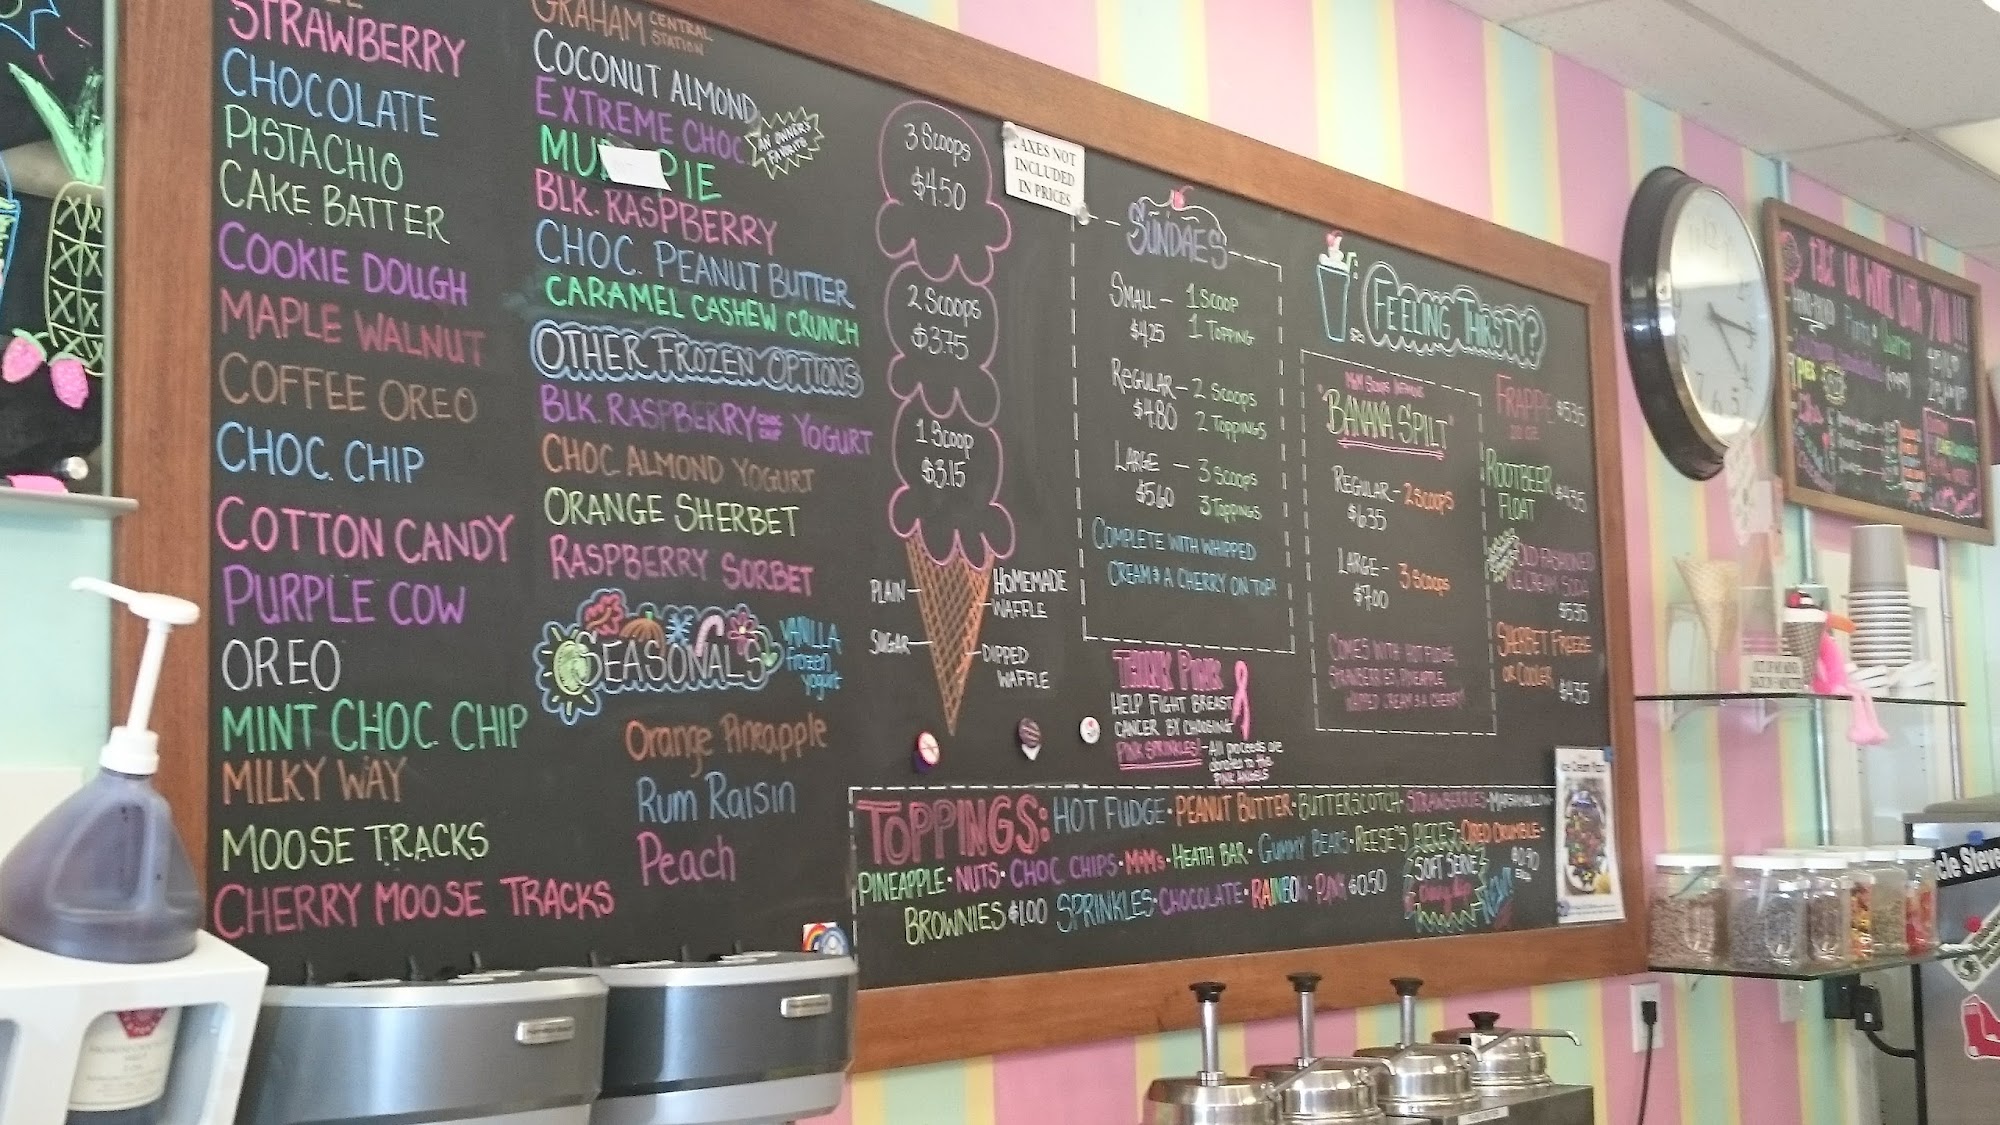 STRAWBERRY
CHOCOLATE
PISTACHIO
CAKE BATTER
COOKIE DOUGH
MAPLE WALNUT
COFFEE OREO
CHOC. CHIP
COTTON CANDY
PURPLE COW
OREO
MINT CHOC. CHIP
MILKY WAY
MOOSE TRACKS
CHERRY MOOSE TRACKS
GRAHAM CENTRAL
STATION
COCONUT ALMOND
EXTREME CHOC.
AN OWNER'S
FAVORITE
PIE
BLK. RASPBERRY
CHOC. PEANUT BUTTER
CARAMEL CASHEW CRUNCH
OTHER FROZEN OPTIONS
BLK. RASPBERRY CHOC CHIP YOGURT
CHOC. ALMOND YOGURT
ORANGE SHERBET
RASPBERRY SORBET
SEASONALS
VANILLA
frozen
yogurt
Orange Pineapple
Rum Raisin
Peach
3 Scoops
$4.50
2 Scoops
$3.75
1 Scoop
$3.15
PLAIN
SUGAR
HOMEMADE
WAFFLE
DIPPED
WAFFLE
TAXES NOT
INCLUDED
IN PRICES
SUNDAES
SMALL - 1 SCOOP
$4.25 1 TOPPING
REGULAR - 2 SCOOPS
$4.80 2 TOPPINGS
LARGE - 3 SCOOPS
$5.60 3 TOPPINGS
COMPLETE WITH WHIPPED
CREAM & A CHERRY ON TOP!
THINK PINK
HELP FIGHT BREAST
CANCER BY CHOOSING
PINK SPRINKLES! - All proceeds are
donated to the
PINK ANGELS
FEELING THIRSTY?
"BANANA SPILT"
REGULAR - 2 SCOOPS
$6.35
LARGE - 3 SCOOPS
$7.00
COMES WITH HOT FUDGE,
STRAWBERRIES, PINEAPPLE,
WHIPPED CREAM & A CHERRY!
FRAPPE $5.35
ROOTBEER
FLOAT $4.35
OLD-FASHIONED
ICE CREAM SODA
$5.35
SHERBET FREEZE
OR COOLER
$4.35
TOPPINGS: HOT FUDGE · PEANUT BUTTER · BUTTERSCOTCH · STRAWBERRIES · MARSHMALLOW
PINEAPPLE · NUTS · CHOC CHIPS · M&M's · HEATH BAR · GUMMY BEARS · REESE'S PIECES · OREO CRUMBLE -
BROWNIES $1.00 SPRINKLES · CHOCOLATE · RAINBOW · PINK $0.50
SOFT SERVE
TAKE US HOME WITH YOU!!!